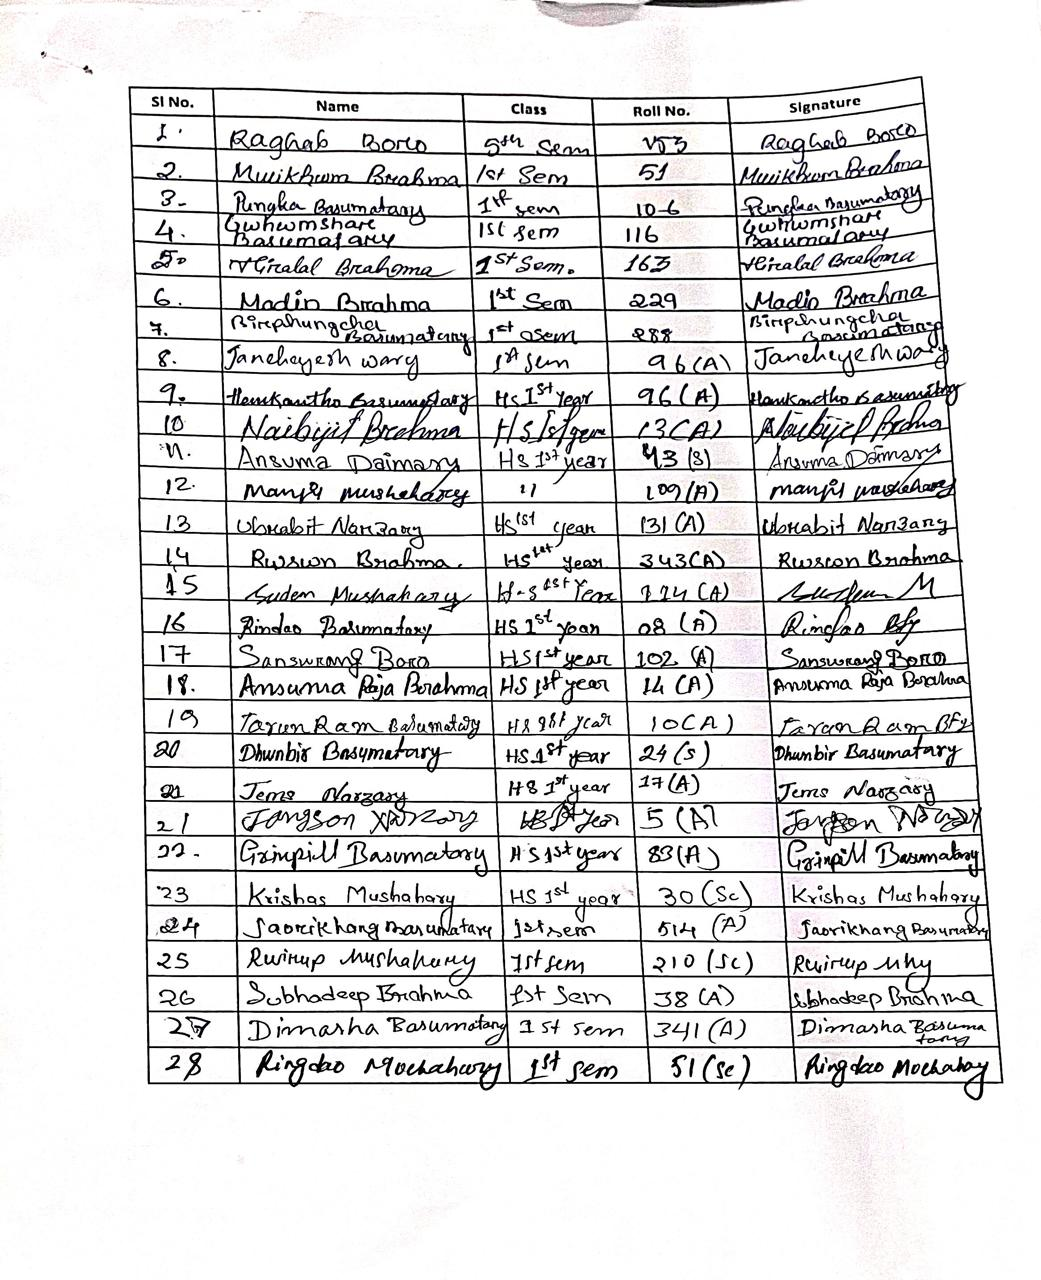 Sl No. Name Class Roll No. Signature
1. Raghab Boro 5th Sem 153 Raghab Boro
2. Mwikhwm Brahma 1st Sem 51 Mwikhwm Brahma
3- Pungka Basumatary 1st sem 106 Pungka Basumatary
4. Gwhwmshare Basumatary 1st sem 116 Gwhwmshare Basumatary
5. Hiralal Brahma 1st Sem. 163 Hiralal Brahma
6. Madin Brahma 1st Sem 229 Madin Brahma
7. Birphungcha Basumatary 1st Sem 288 Birphungcha Basumatary
8. Janeheyesh wary 1st sem 96 (A) Janeheyesh wary
9. Hemkantho Basumatary HS 1st year 96 (A) Hemkantho Basumatary
10 Naibijit Brahma HS 1st year 13 (A) Naibijit Brahma
11. Ansuma Daimary HS 1st year 43 (S) Ansuma Daimary
12. Manjil mushahary 11 109 (A) manjil mushahary
13 Ubrabit Narzary HS 1st year 131 (A) Ubrabit Narzary
14 Rwswn Brahma. HS 1st year 343(A) Rwswn Brahma
15 Sudem Mushahary H-S 1st Year (A) M
16 Rindao Basumatary HS 1st year 08 (A) Rindao Bty
17 Sanswrang Boro HS 1st year 102 (A) Sanswrang Boro
18. Ansuma Raja Borahma HS 1st year 14 (A) Ansuma Raja Borahma
19 Tarun Ram Basumatary HS 1st year 10(A) Tarun Ram Bty
20 Dhunbir Basumatary HS 1st year 24 (S) Dhunbir Basumatary
21 Jems Narzary HS 1st year 17 (A) Jems Narzary
21 Jangson Narzary HS 1st Year 5 (A) Jangson Narzary
22- Grinpill Basumatary HS 1st year 83(A) Grinpill Basumatary
23 Krishas Mushahary HS 1st year 30 (Sc) Krishas Mushahary
24 Jaorikhang Basumatary 1st sem 514 (A) Jaorikhang Basumatary
25 Rwirup Mushahary 1st sem 210 (Sc) Rwirup Mhy
26 Subhadeep Brahma 1st Sem 38 (A) Subhadeep Brahma
27 Dimasha Basumatary 1st sem 341 (A) Dimasha Basumatary
28 Ringdao Mochahary 1st sem 51 (Sc) Ringdao Mochahary